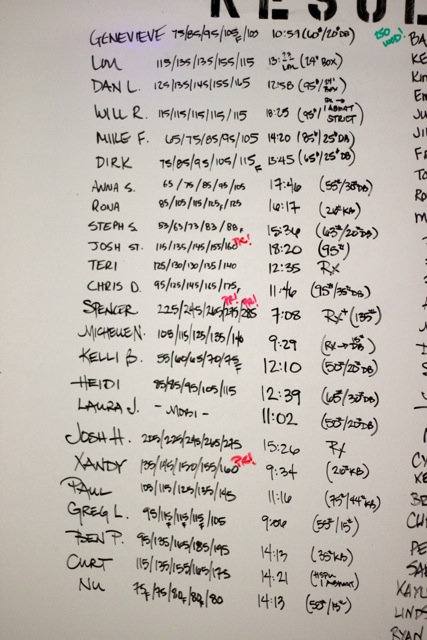 RESUL
GENEVIEVE 75/85/95/105F/105 10:59 (60#/20#DB)
LIM 115/135/135/155/115 13:22 (24" BOX)
DAN L. 125/135/145/155/165 12:58 (95#/24" BOX)
WILL R. 115/115/115/115/115 18:25 (95#/ 1 ABMAT STRICT)
MIKE F. 65/75/85/95/105 14:20 (85#/25#DB)
DIRK 75/85/95/105/115F 13:45 (65#/25#DB)
ANNA S. 65/75/85/95/105 17:46 (55#/30#DB)
RONA 85/105/115/125F/125 16:17 (26#KB)
STEPH S. 53/63/73/83/88F 15:36 (63#/20#DB)
JOSH ST. 115/135/145/155/160 PR! 18:20 (95#)
TERI 125/130/130/135/140 12:35 Rx
CHRIS D. 95/125/145/165/175F 11:46 (95#/35#DB)
SPENCER 225/245/265/275/285 PR! PR! 7:08 Rx+ (135#)
MICHELLE N. 105/115/125/135/140 9:29 (Rx → 15# DB)
KELLI B. 55/60/65/70/75F 12:10 (50#/20#DB)
HEIDI 85/85/95/105/115 12:39 (65#/30#DB)
LAURA J. - MOBI - 11:02 (50#/20#DB)
JOSH H. 205/225/245/265/275 15:26 Rx
XANDY 135/145/150/155/160 PR! 9:34 (20#KB)
PAUL 105/115/125/135/145 11:16 (75#/44#KB)
GREG L. 95/115F/115F/115F/105 9:06 (55#/15#)
BEN P. 95/135/165/185/195
CURT 115/135/155/165/175 14:13 (35#KB)
NU 75F/75/80F/80F/80 14:21 (HSPU 1 ABMAT)
14:13 (50#/15#)